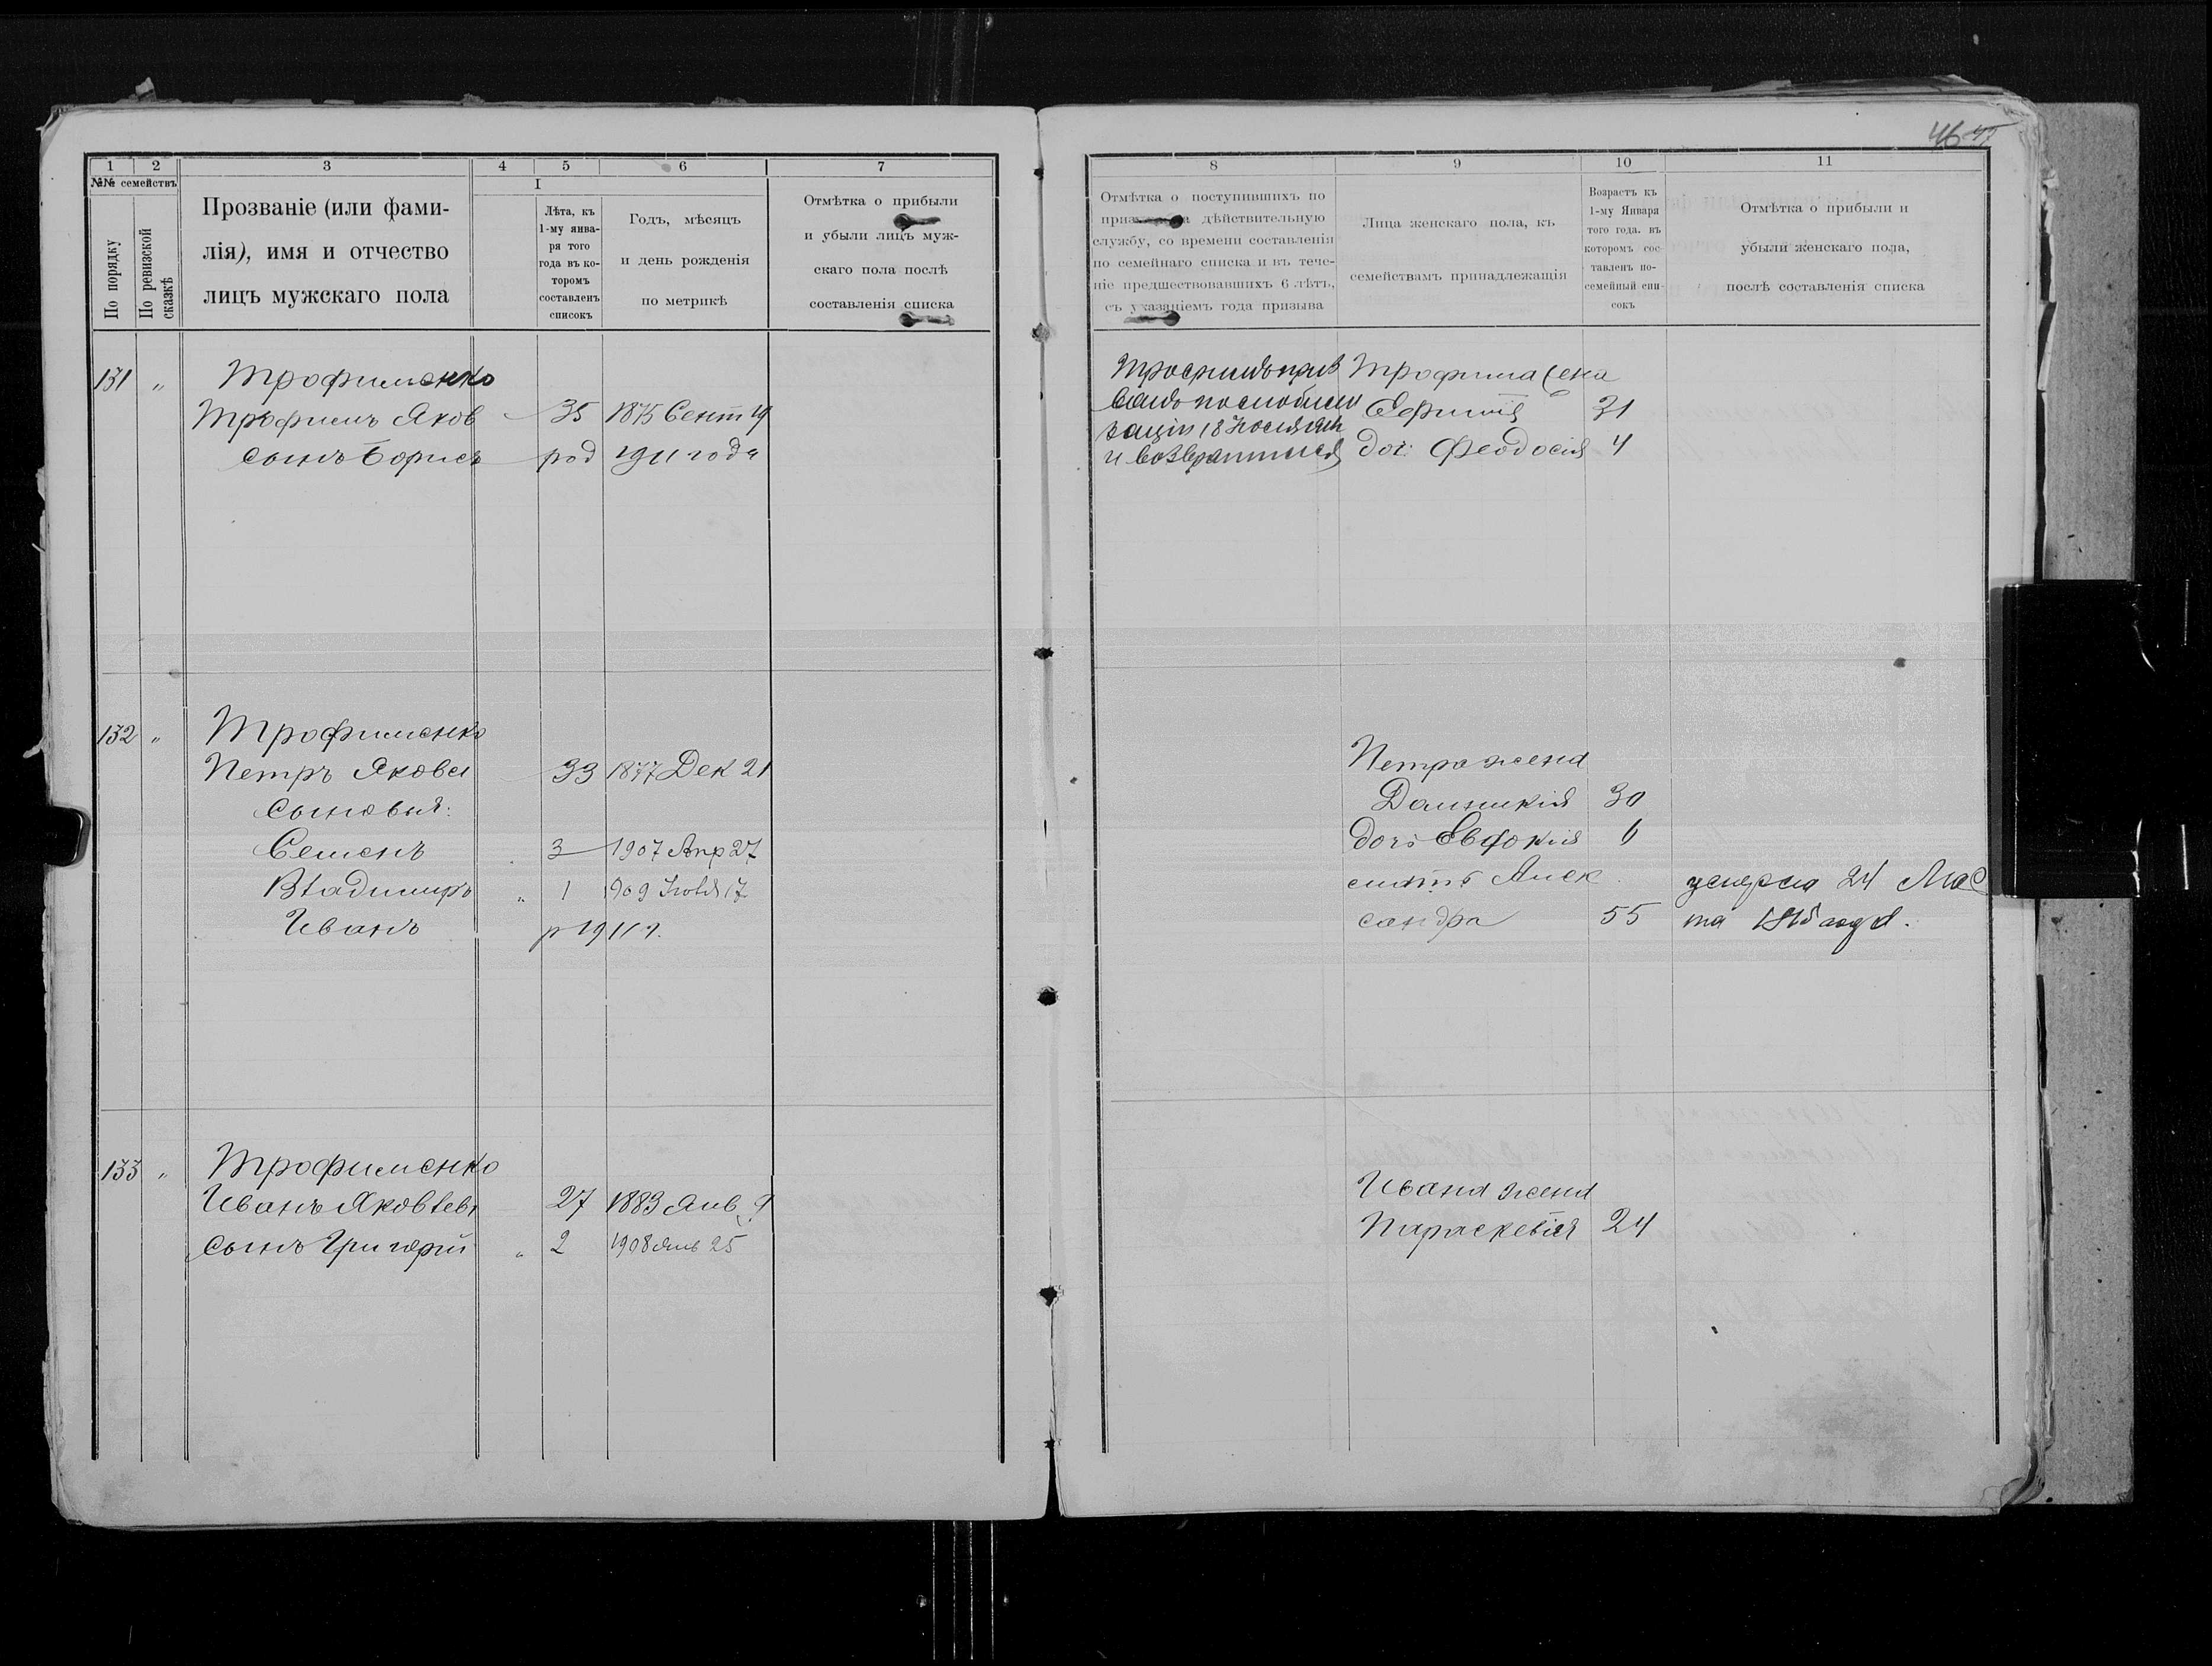 46 45
1 2 3 4 5 6 7
№№ семействъ
По порядку
По ревизской сказкѣ
Прозваніе (или фами-
лія), имя и отчество
лицъ мужскаго пола
I
Лѣта, къ
1-му янва-
ря того
года въ ко-
торомъ
составленъ
списокъ
Годъ, мѣсяцъ
и день рожденія
по метрикѣ
Отмѣтка о прибыли
и убыли лицъ муж-
скаго пола послѣ
составленія списка
131 " Трофименко
Трофимъ Яков 35 1875 Сент 19
сынъ Борисъ род 1911 года
132 " Трофименко
Петръ Яковл 33 1877 Дек 21
сыновья:
Семенъ 3 1907 Апр 27
Владимиръ " 1 1909 Іюля 17
Иванъ р 1911 г.
133 " Трофименко
Иванъ Яковлев 27 1883 Янв 9
сынъ Григорій " 2 1908 Янв 25
8 9 10 11
Отмѣтка о поступившихъ по
дѣйствительную
службу, со времени составленія
по семейнаго списка и въ тече-
ніе предшествовавшихъ 6 лѣтъ,
съ указаніемъ года призыва
Лица женскаго пола, къ
семействамъ принадлежащія
Возрастъ къ
1-му Января
того года, въ
которомъ сос-
тавленъ по-
семейный спи-
сокъ
Отмѣтка о прибыли и
убыли женскаго пола,
послѣ составленія списка
Трофимъ приз
ванъ по мобили
заціи 18 Іюля
и возвратился
Трофима жена
Ефимія 31
доч: Феодосія 4
Петра жена
Домникія 30
дочь Евдокія 6
мать Алек
сандра 55
умерла 24 Мар
та 1915 года.
Ивана жена
Параскевія 24